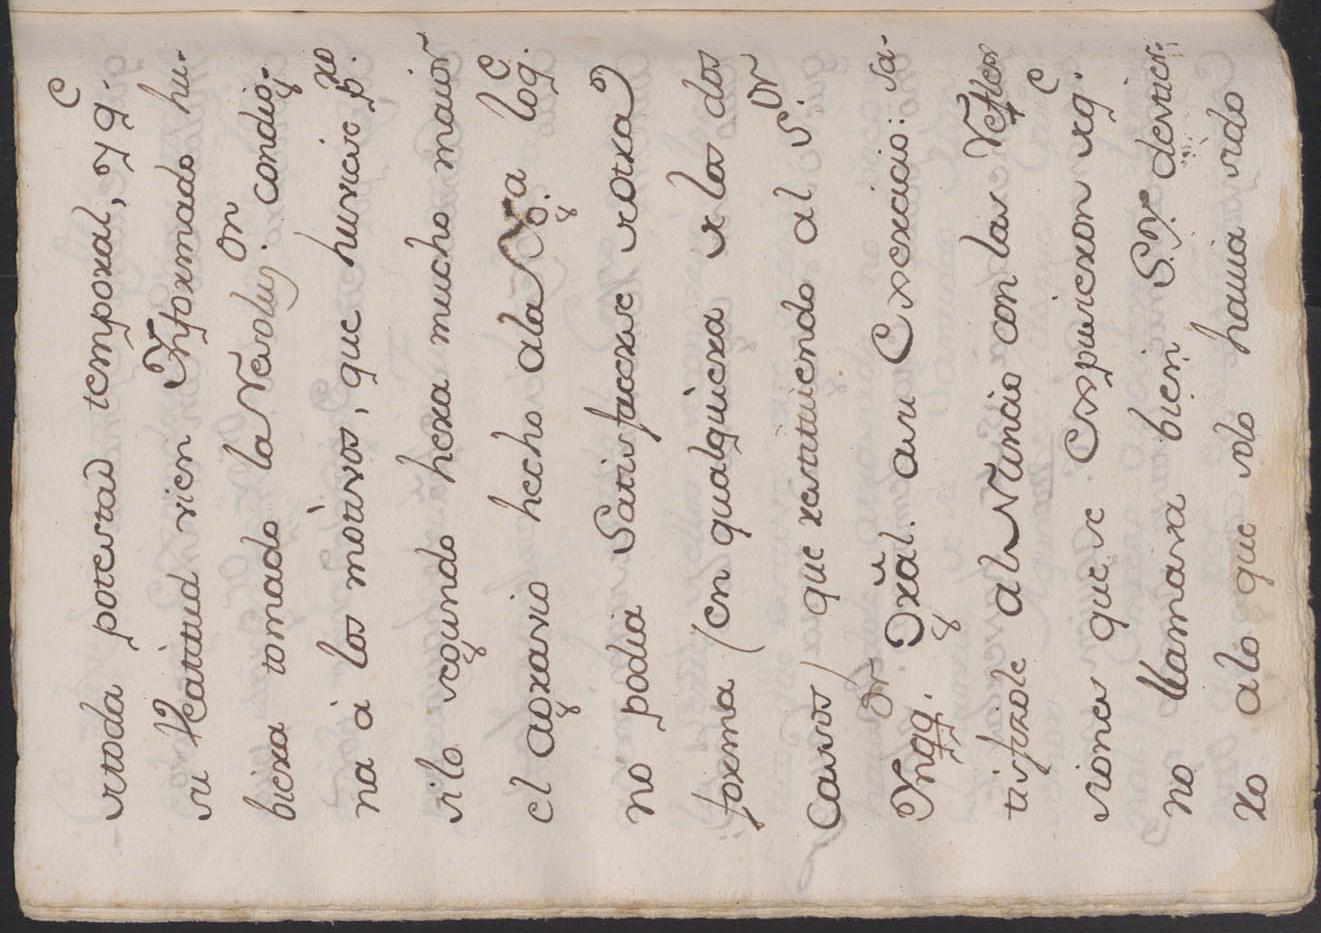 sitada potestad temporal, y q.e
su Beatitud vien Ynformado hu-
biera tomado la Resoluz.on condig-
na á los motivos, que huviere p.ro
si lo segundo hera mucho maior
el agravio hecho ala Igª. log.e
no podia Satisfacerse sin otra
forma /en qualquiera de los dos
Casos/ que restituiendo al S.or
Ynqq.or Gral. asu Exercicio: Sa-
tisfizole al Nuncio con las Reflex
siones que se Expusieron deq.e
no llamara bien S.or devier-
xo alo que solo havia sido